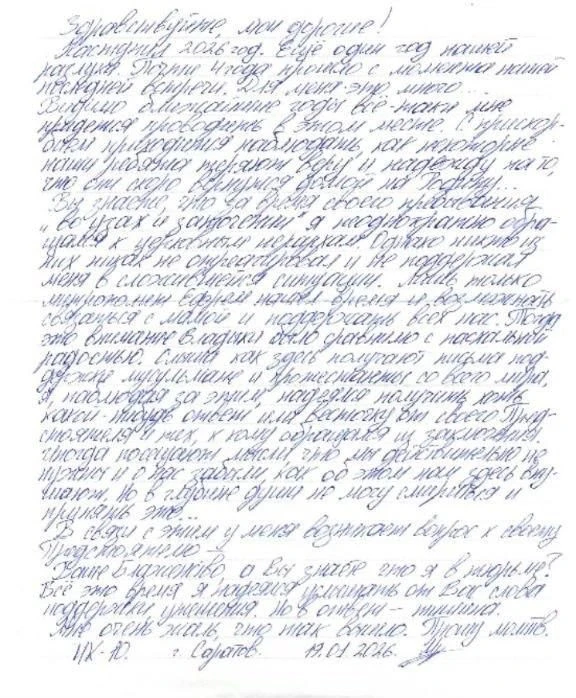 Здравствуйте, мои дорогие!
Наступил 2026 год. Ещё один год нашей
разлуки. Почти 4 года прошло с момента нашей
последней встречи. Для меня это много...
Видимо ближайшие годы всё-таки мне
придется проводить в этом месте. С прискор-
бием приходится наблюдать, как некоторые
наши ребята теряют веру и надежду на то,
что они скоро вернутся домой на Родину...
Вы знаете, что за время своего пребывания
„во узах и заточении" я неоднократно обра-
щался к церковным иерархам. Однако никто из
них никак не отреагировал и не поддержал
меня в сложившейся ситуации. Лишь только
митрополит Ефрем нашел время и возможность
связаться с мамой и поддержать всех нас. Тогда
это внимание Владыки было сравнимо с пасхальной
радостью. Слыша как здесь получают письма под-
держки мусульмане и протестанты со всего мира,
я, наблюдая за этим, надеялся получить хоть
какой-нибудь ответ или весточку от своего Пред-
стоятеля и тех, к кому обращался из заключения.
Иногда посещают мысли что мы действительно не
нужны и о нас забыли, как об этом нам здесь вну-
шают. Но в глубине души не могу смириться и
принять это...
В связи с этим у меня возникает вопрос к своему
Предстоятелю —
Ваше Блаженство, а Вы знаете что я в тюрьме?
Всё это время я надеялся услышать от Вас слова
поддержки утешения. Но в ответ – тишина.
Мне очень жаль, что так вышло. Прошу молитв.
ИК-10. г. Саратов. 19.01.2026.